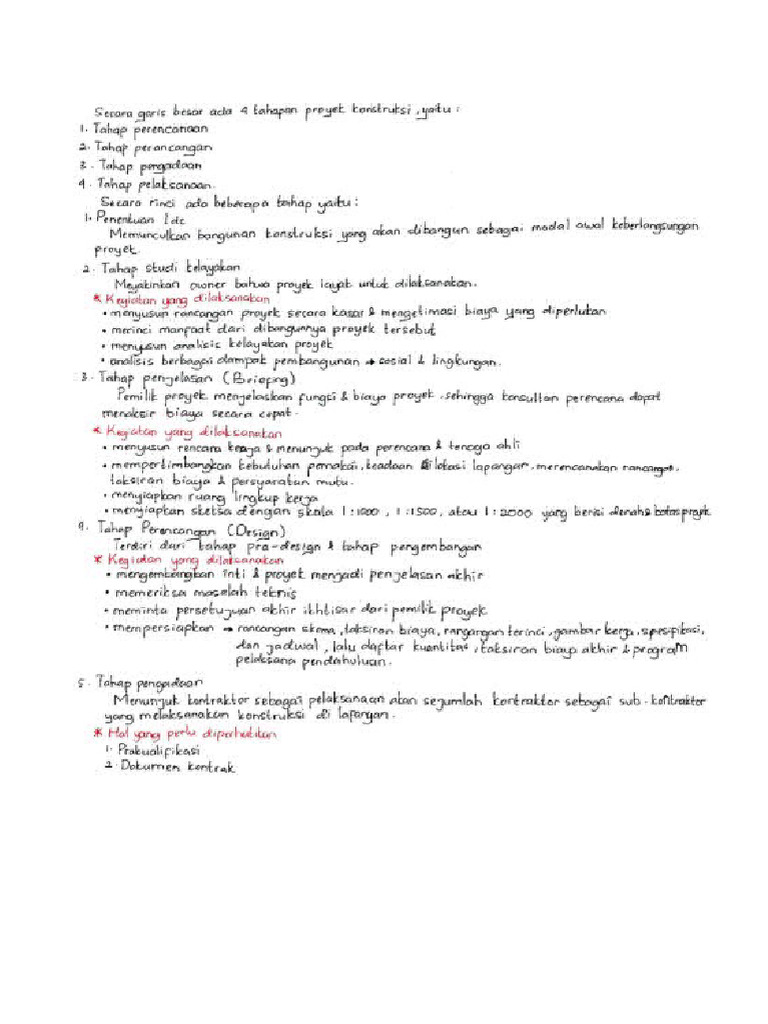 Secara garis besar ada 4 tahapan proyek konstruksi, yaitu :
1. Tahap perencanaan
2. Tahap perancangan
3. Tahap pengadaan
4. Tahap pelaksanaan.
Secara rinci ada beberapa tahap yaitu :
1. Penentuan Ide
Memunculkan bangunan konstruksi yang akan dibangun sebagai modal awal keberlangsungan
proyek.
2. Tahap studi kelayakan
Meyakinkan owner bahwa proyek layak untuk dilaksanakan.
* Kegiatan yang dilaksanakan
• menyusun rancangan proyek secara kasar & mengetimasi biaya yang diperlukan
• merinci manfaat dari dibangunnya proyek tersebut
• menyusun analisis kelayakan proyek
• analisis berbagai dampak pembangunan → sosial & lingkungan.
3. Tahap penjelasan (Briefing)
Pemilik proyek menjelaskan fungsi & biaya proyek, sehingga konsultan perencana dapat
menaksir biaya secara cepat.
* Kegiatan yang dilaksanakan
• menyusun rencana kerja & menunjuk pada perencana & tenaga ahli
• mempertimbangkan kebutuhan pemakai, keadaan lokasi lapangan, merencanakan rancangan,
taksiran biaya & persyaratan mutu.
• menyiapkan ruang lingkup kerja
• menyiapkan sketsa dengan skala 1:1000, 1:1500, atau 1:2000 yang berisi denah & batas proyek
4. Tahap Perencangan (Design)
Terdiri dari tahap pra-design & tahap pengembangan
* Kegiatan yang dilaksanakan
• mengembangkan inti & proyek menjadi penjelasan akhir
• memeriksa masalah teknis
• meminta persetujuan akhir ikhtisar dari pemilik proyek
• mempersiapkan → rancangan skema, taksiran biaya, rangangan terinci, gambar kerja, spesifikasi,
dan jadwal, lalu daftar kuantitas, taksiran biaya akhir & program
pelaksana pendahuluan.
5. Tahap pengadaan
Menunjuk kontraktor sebagai pelaksanaan akan sejumlah kontraktor sebagai sub-kontraktor
yang melaksanakan konstruksi di lapangan.
* Hal yang perlu diperhatikan
1. Prakualifikasi
2. Dokumen kontrak